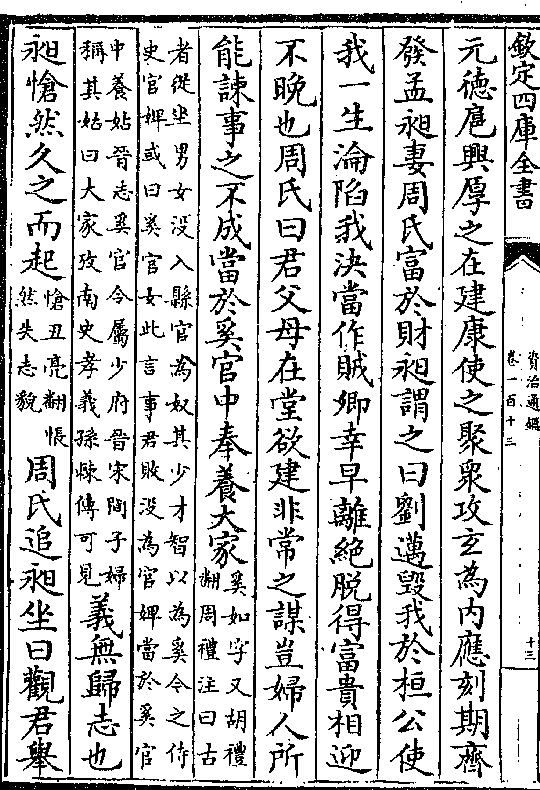 欽定四庫全書
資治通鑑
卷一百十三
十三
元德扈興厚之在建康使之聚衆攻玄為内應刻期齊
發孟昶妻周氏富於財昶謂之曰劉邁毀我於桓公使
我一生淪陷我決當作賊卿幸早離絶脱得富貴相迎
不晚也周氏曰君父母在堂欲建非常之謀豈婦人所
能諫事之不成當於奚官中奉養大家
奚如字又胡禮
翻周禮注曰古
者從坐男女没入縣官為奴其少才智以為奚今之侍
史官婢或曰奚官女此言事君敗没為官婢當於奚官
中養姑晉志奚官令屬少府晉宋間子婦
稱其姑曰大家攷南史孝義孫棘傳可見
義無歸志也
昶愴然久之而起
愴丑亮翻悵
然失志貌
周氏追昶坐曰觀君舉